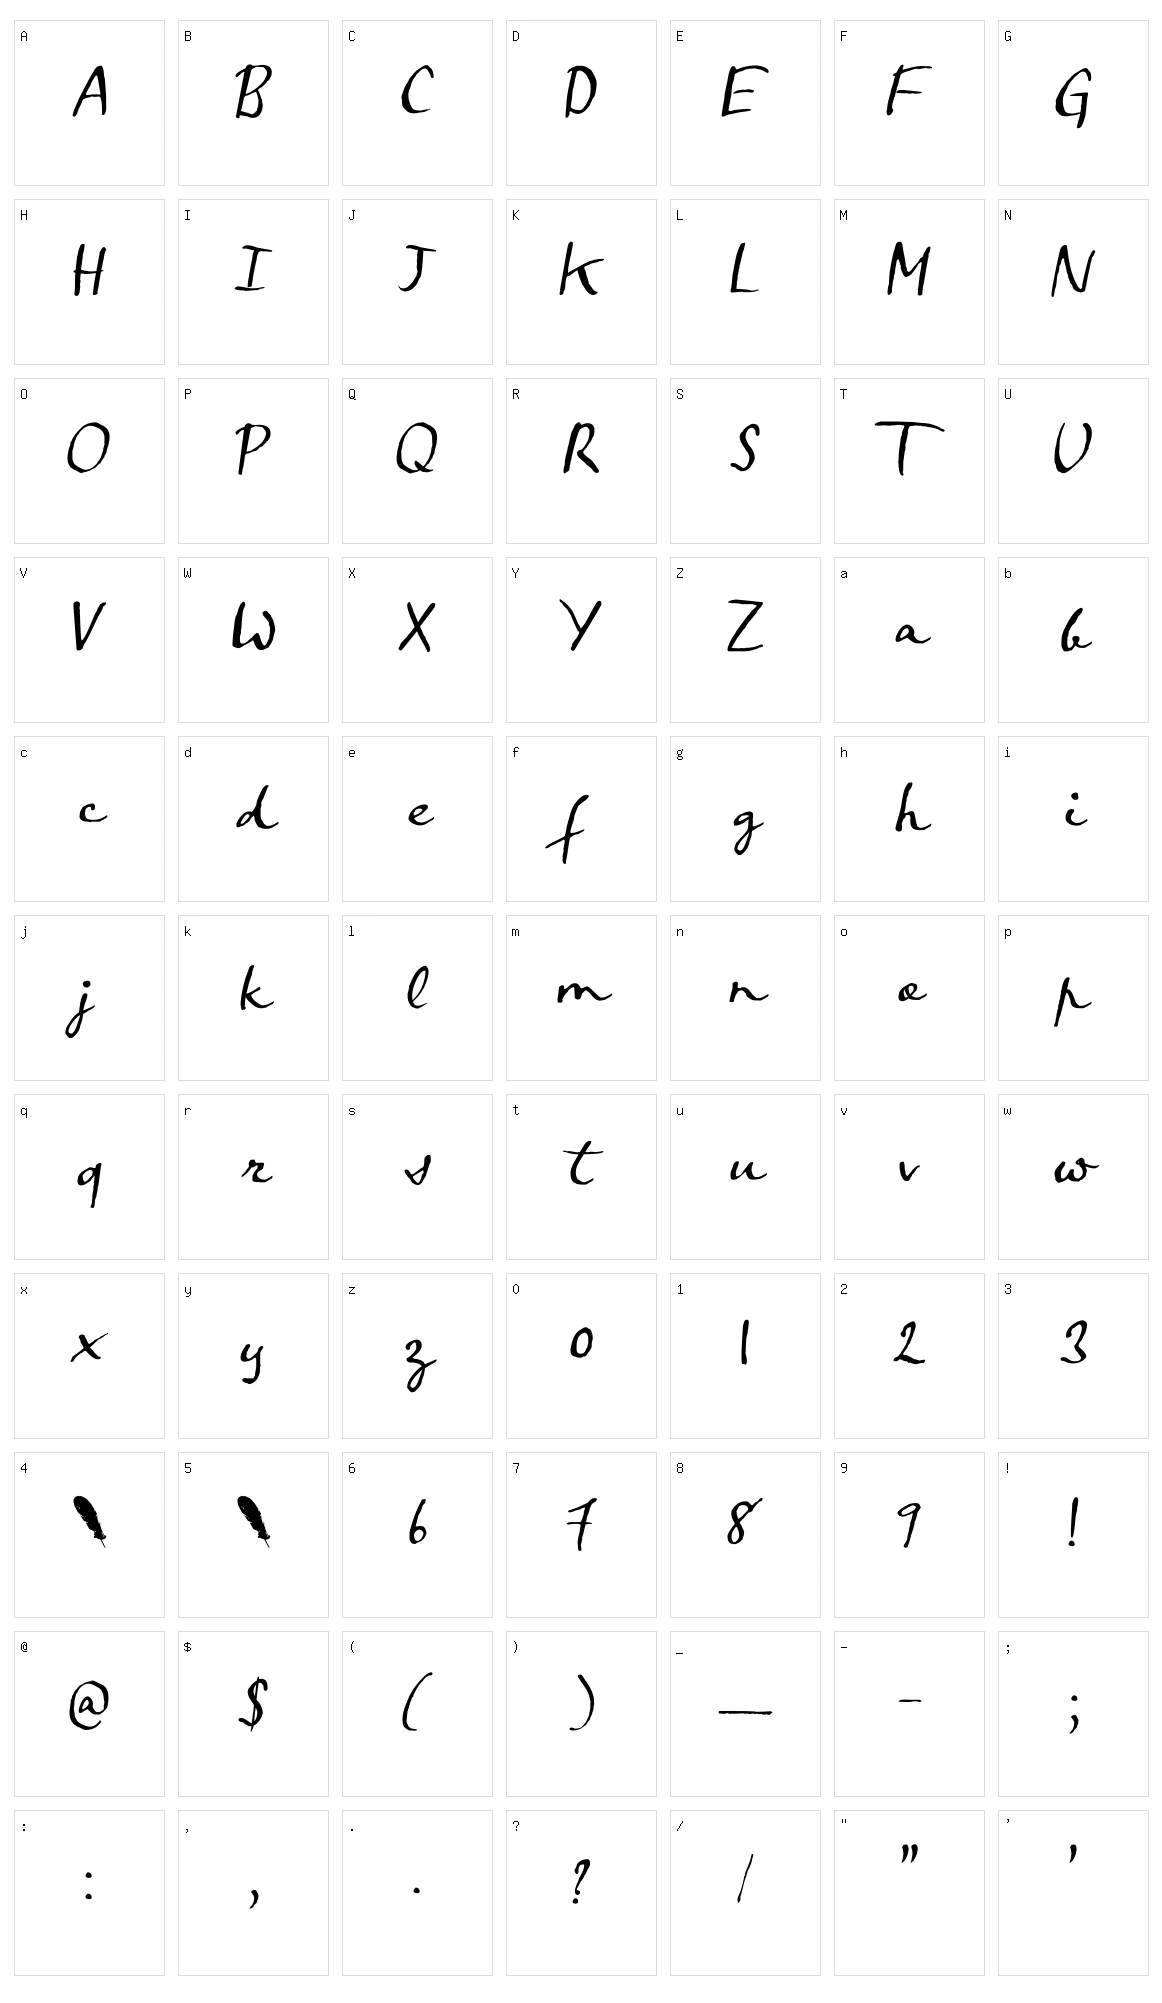 A B C D E F G
A B C D E F G
H I J K L M N
H I J K L M N
O P Q R S T U
O P Q R S T U
V W X Y Z a b
V W X Y Z a b
c d e f g h i
c d e f g h i
j k l m n o p
j k l m n o p
q r s t u v w
q r s t u v w
x y z 0 1 2 3
x y z 0 1 2 3
4 5 6 7 8 9 !
6 7 8 9 !
@ $ ( ) _ - ;
@ $ ( ) _ - ;
: , . ? / " '
: , . ? / " '